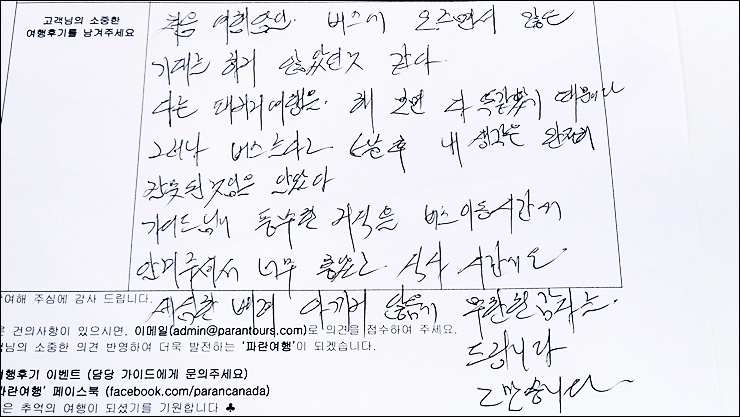 고객님의 소중한
여행후기를 남겨주세요
처음 여행왔던 버스에 오르면서 많은
기대는 하지 않았던것 같다
다른 패키지여행은 해 보면 다 똑같았기 때문이다
그러나 버스 후 내 생각은 완전히
잘못된것임은 알았다
가이드님이 버스이동시간에
너무 좋았고 식사 시간에도
세심한 배려 아끼지 않음에 무한한 감사를
드립니다
여해 주심에 감사 드립니다.
은 건의사항이 있으시면, 이메일(admin@parantours.com)로 의견을 접수하여 주세요.
님의 소중한 의견 반영하여 더욱 발전하는 '파란여행'이 되겠습니다.
여행후기 이벤트 (담당 가이드에게 문의주세요)
파란여행' 페이스북 (facebook.com/parancanada)
은 추억의 여행이 되셨기를 기원합니다 ♣